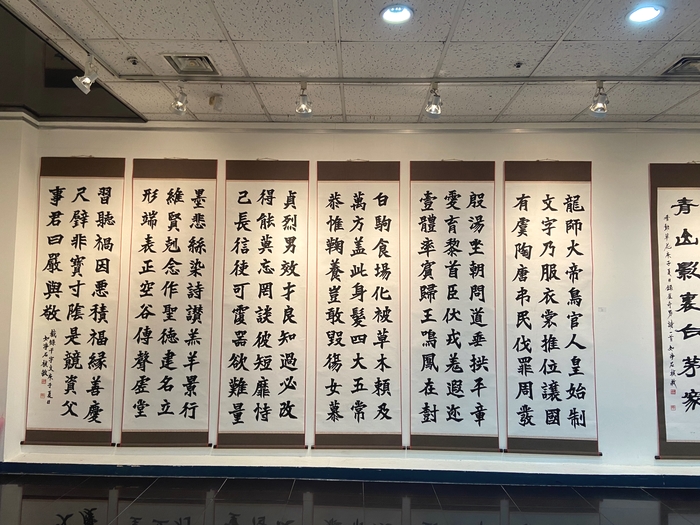 青山影裏白茅家
龍師火帝鳥官人皇始制
文字乃服衣裳推位讓國
有虞陶唐弔民伐罪周發
殷湯坐朝問道垂拱平章
愛育黎首臣伏戎羌遐邇
壹體率賓歸王鳴鳳在樹
白駒食場化被草木賴及
萬方盖此身髮四大五常
恭惟鞠養豈敢毀傷女慕
貞烈男效才良知過必改
得能莫忘罔談彼短靡恃
己長信使可覆器欲難量
墨悲絲染詩讚羔羊景行
維賢剋念作聖德建名立
形端表正空谷傳聲虛堂
習聽禍因悪積福緣善慶
尺璧非寶寸陰是競資父
事君曰嚴與敬
千字文庚子夏日